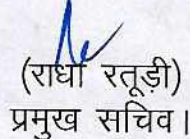 (राधा रतूड़ी)
प्रमुख सचिव।